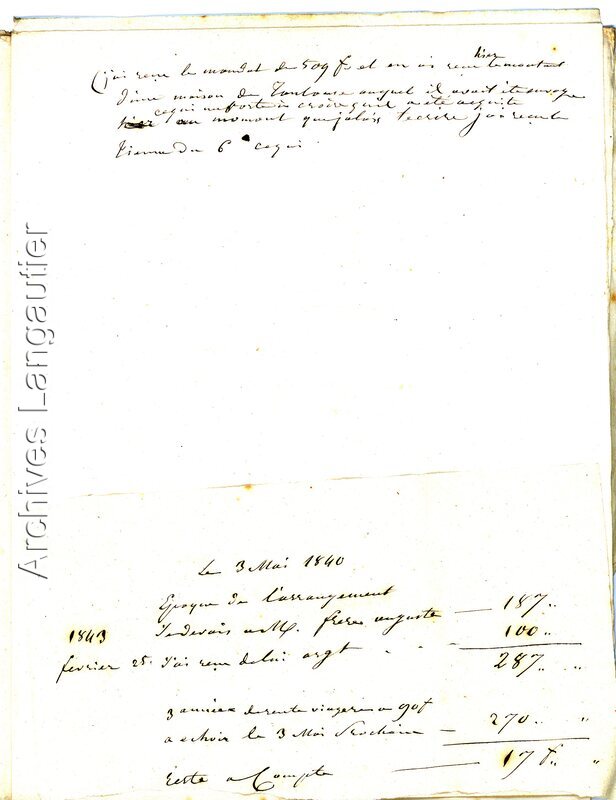 (j'ai reçu le mandat de 509 f. et en ai reçu hier le montant
d'une maison de Toulouse auquel il avait été envoyé
ce qui me porte à croire qu'il a été acquitté
au moment que j'alais t'ecrire j'ai reçu la
tienne du 6 ce qui
Archives Langautier
Le 3 Mai 1840
Epoque de l'arrangement
Je devois a M. frère auguste — 187 "
1843
fevrier 25. J'ai reçu de lui argt - - 100 "
287 " "
3 années de rente viagere a 90f
a echoir le 3 Mai Prochain — 270 " "
Reste a Compte — 17 f. " "